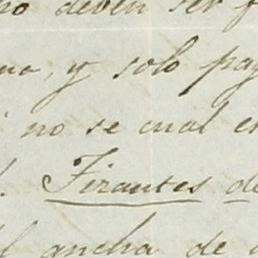 no deven ser
y solo pag
no se cual e
Tirantes de
ancha de